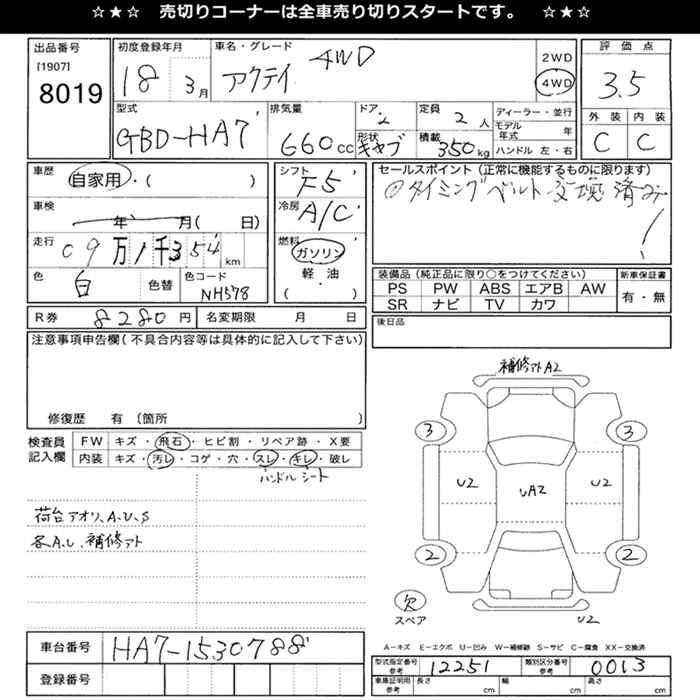 ☆★☆ 売切りコーナーは全車売り切りスタートです。 ☆★☆
出品番号
[1907]
8019
初度登録年月
18 3月
車名・グレード
アクティ 4WD
2WD
4WD
評価点
3.5
外装 内装
C C
型式
GBD-HA7
排気量
660cc
ドア
2
形状
キャブ
定員
2人
積載
350kg
ディーラー・並行
モデル年式 年
ハンドル 左・右
車歴
自家用・( )
車検
年 月( 日)
走行
09万1千354km
色
白
色替
色コード
NH578
シフト
F5
冷房
A/C
燃料
ガソリン
軽・油
( )
セールスポイント(正常に機能するものに限ります)
◎タイミングベルト交換済み!
装備品(純正品に限り○をつけてください)
PS PW ABS エアB AW
SR ナビ TV カワ
新車保証書
有・無
R券 8280円
名変期限 月 日
後日品
注意事項申告欄(不具合内容等は具体的に記入して下さい)
修復歴 有 〔箇所 〕
検査員記入欄
FW キズ・飛石・ヒビ割・リペア跡・X要
内装 キズ・汚レ・コゲ・穴・スレ・キレ・破レ
ハンドル シート
荷台アオリ、A、U、S
各A、U、補修アト
補修アトA2
3 3
U2 UA2 U2
2 2
欠
スペア
U2
車台番号 HA7-1530788
登録番号
A-キズ E-エクボ U-凹み W-補修跡 S-サビ C-腐食 XX-交換済
型式指定番号参考 12251
類別区分番号参考 0013
車庫証明用参考 長さ cm 幅 cm 高さ cm